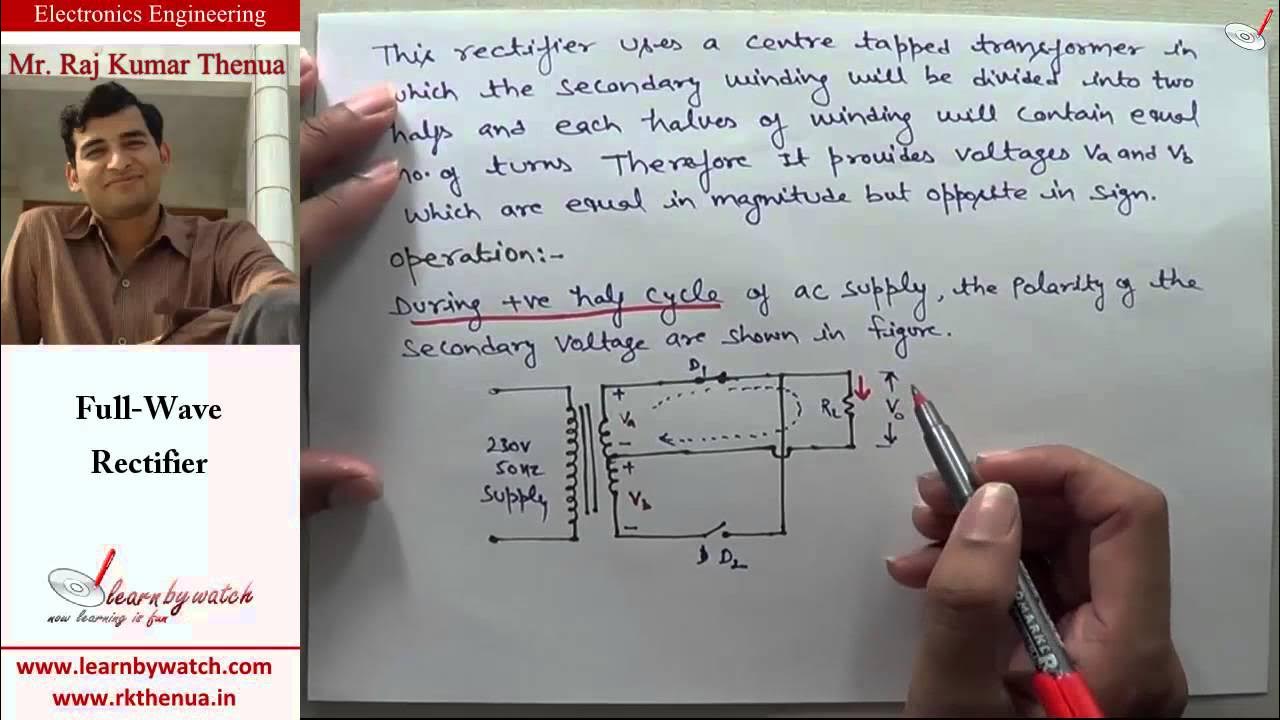 Electronics Engineering
Mr. Raj Kumar Thenua
Full-Wave
Rectifier
learnbywatch
now learning is fun
www.learnbywatch.com
www.rkthenua.in
This rectifier uses a centre tapped transformer in
which the secondary winding will be divided into two
halfs and each halves of winding will contain equal
no. of turns Therefore It provides voltages Va and Vb
which are equal in magnitude but opposite in sign.
operation:-
During +ve half cycle of ac supply, the polarity of the
secondary voltage are shown in figure.
D1
+
Va
-
RL
Vo
230V
50Hz
Supply
+
Vb
-
D2
OMARKER